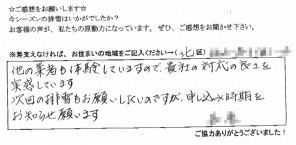 ☆ご感想をお願いします☆
今シーズンの排雪はいかがでしたか？
お客様の声が、私たちの原動力になっています。ぜひ、ご感想をお聞かせ下さい。
※差支えなければ、お住まいの地域をご記入ください→（北区
他の業者も体験していますので、貴社の対応の良さを
実感しています
次回の排雪もお願いしたいのですが、申し込み時期を
お知らせ願います
ご協力ありがとうございました！